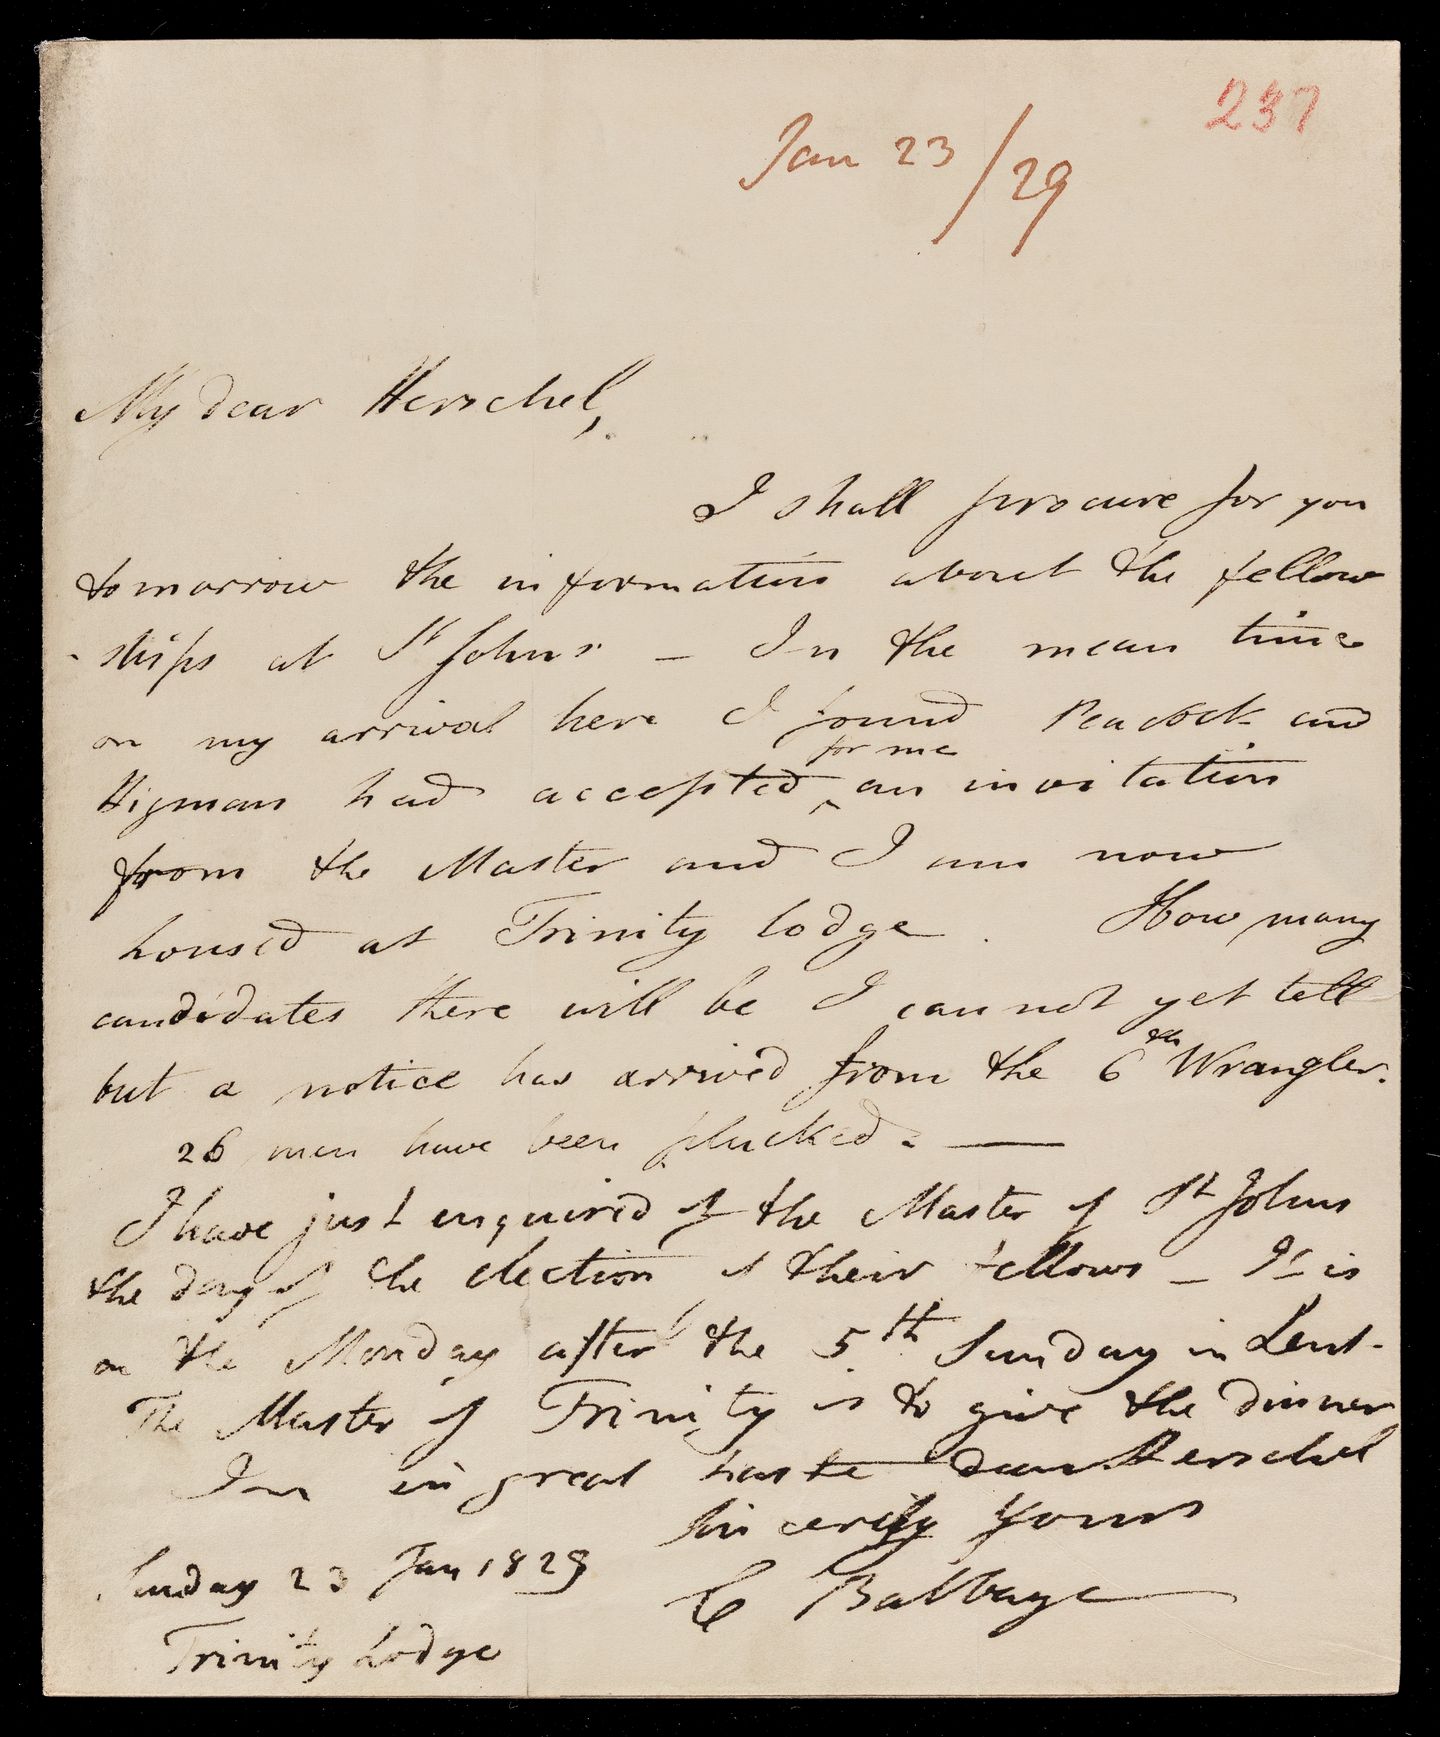 237
Jan 23/29
My dear Herschel,
I shall procure for you
tomorrow the information about the fellow
-ships at St Johns - In the mean time
on my arrival here I found Peacock and
for me
Higman had accepted ^ an invitation
from the Master and I am now
housed at Trinity lodge. How many
candidates there will be I cannot yet tell
but a notice has arrived from the 6th Wrangler.
26 men have been plucked. —
I have just enquired of the Master of St Johns
the day of the election of their fellows - It is
on the Monday after the 5th Sunday in Lent.
The Master of Trinity is to give the dinner
I'm in great haste dear Herschel
Sincerely Yours
C Babbage
Sunday 23 Jan 1829
Trinity Lodge